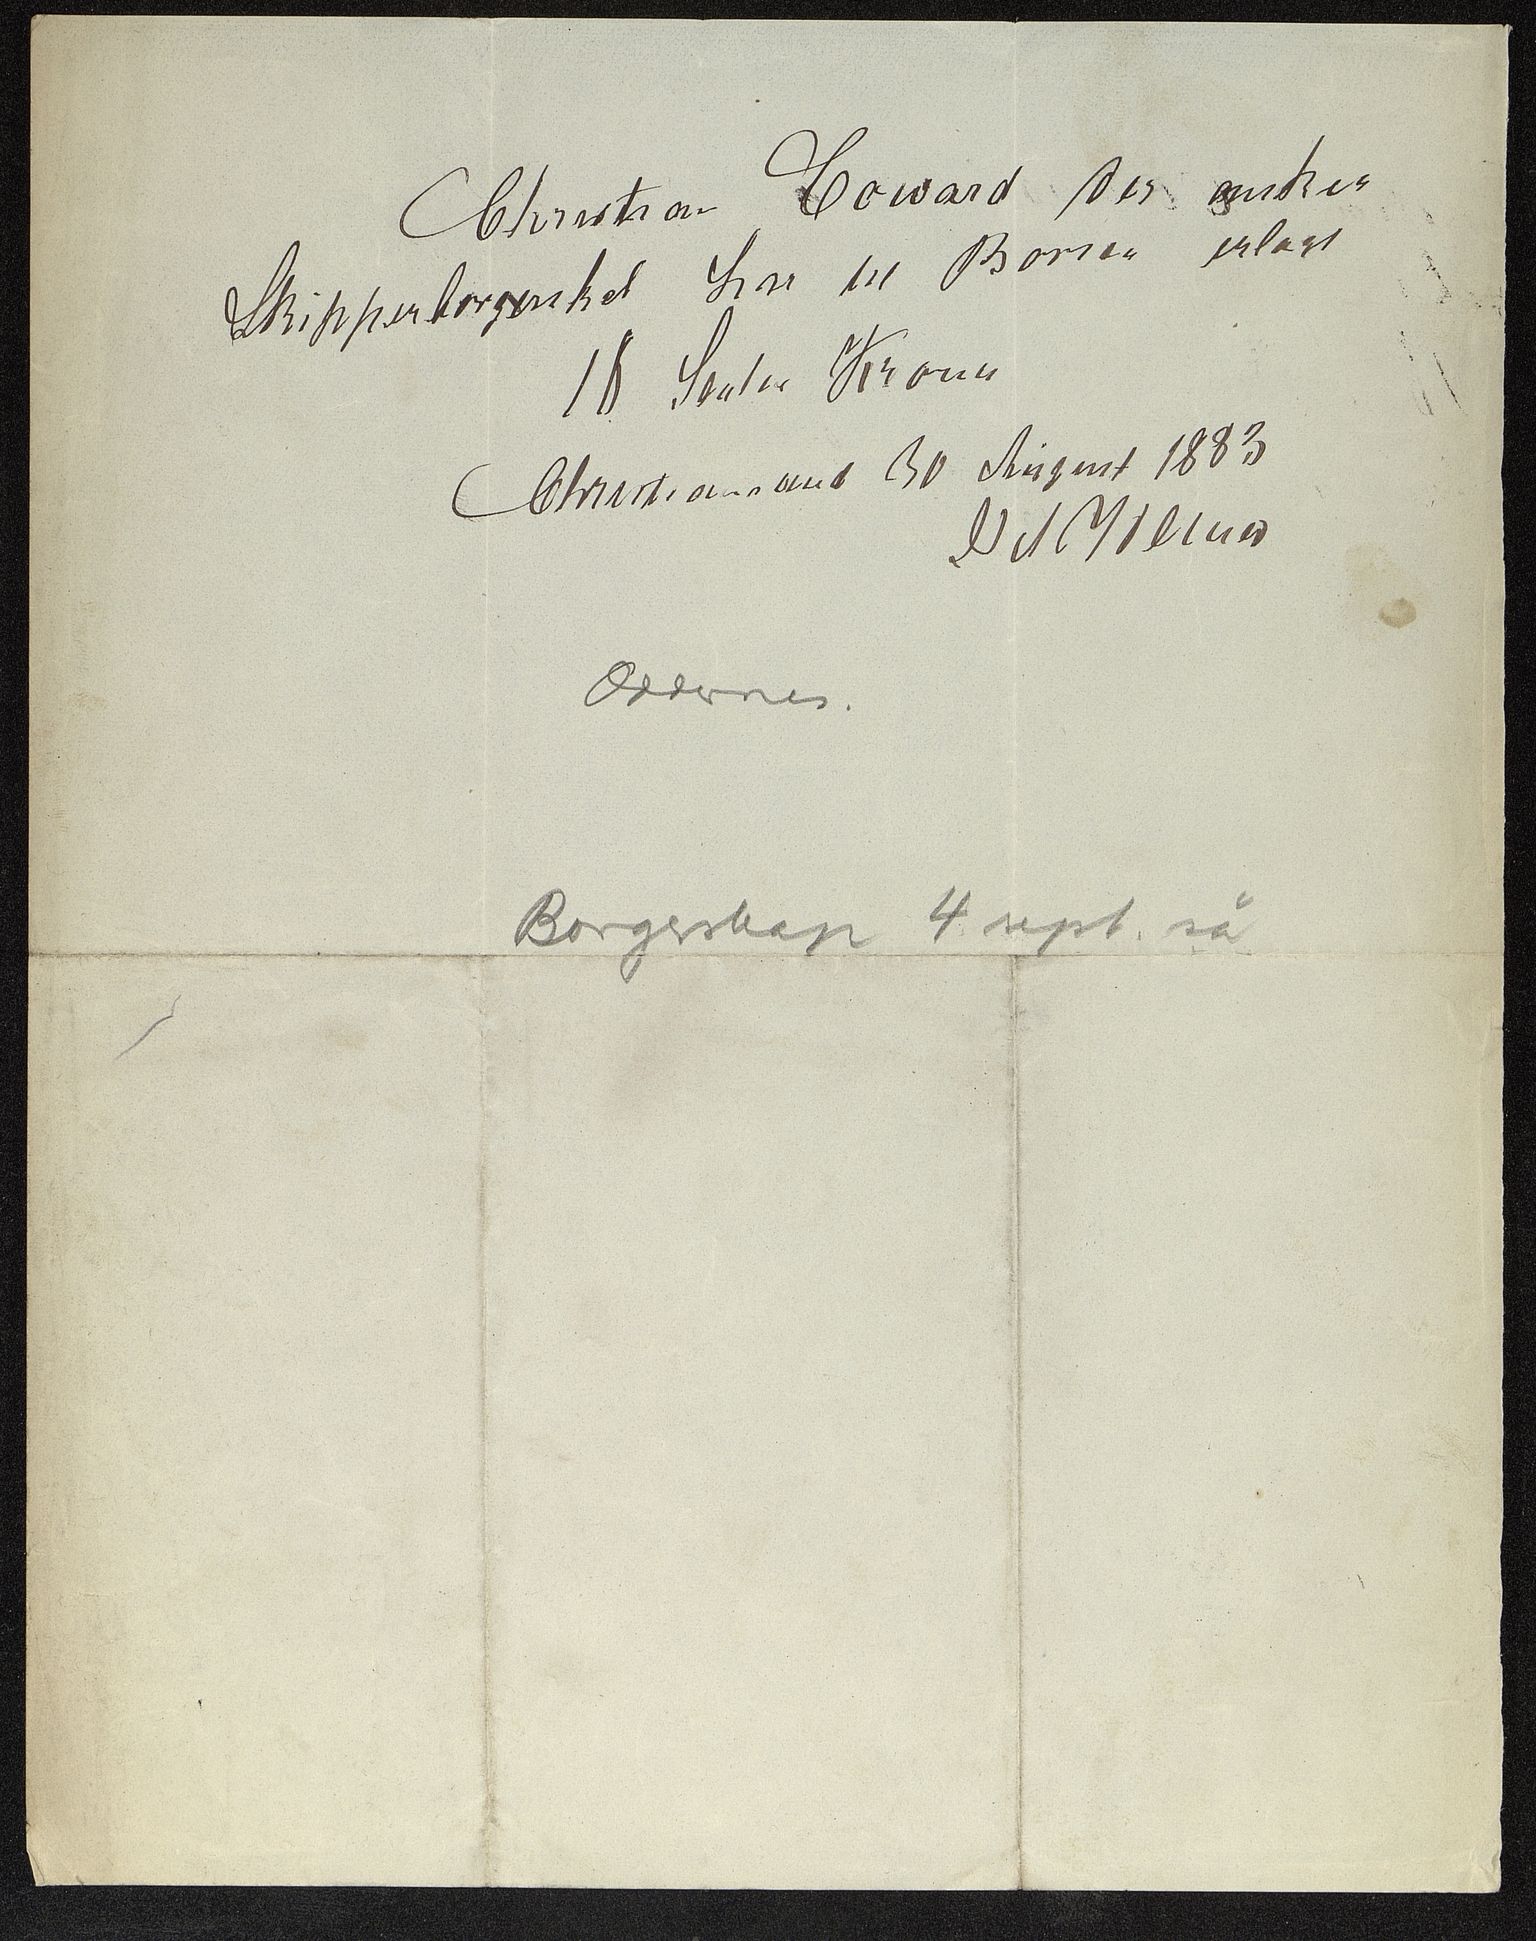 Christian Coward der ønsker
Skipperborgerskab har til Børsen erlagt
16 Sexten Kroner
Christianssand 30 August 1883
Oddernes.
Borgerskap 4 sept. så